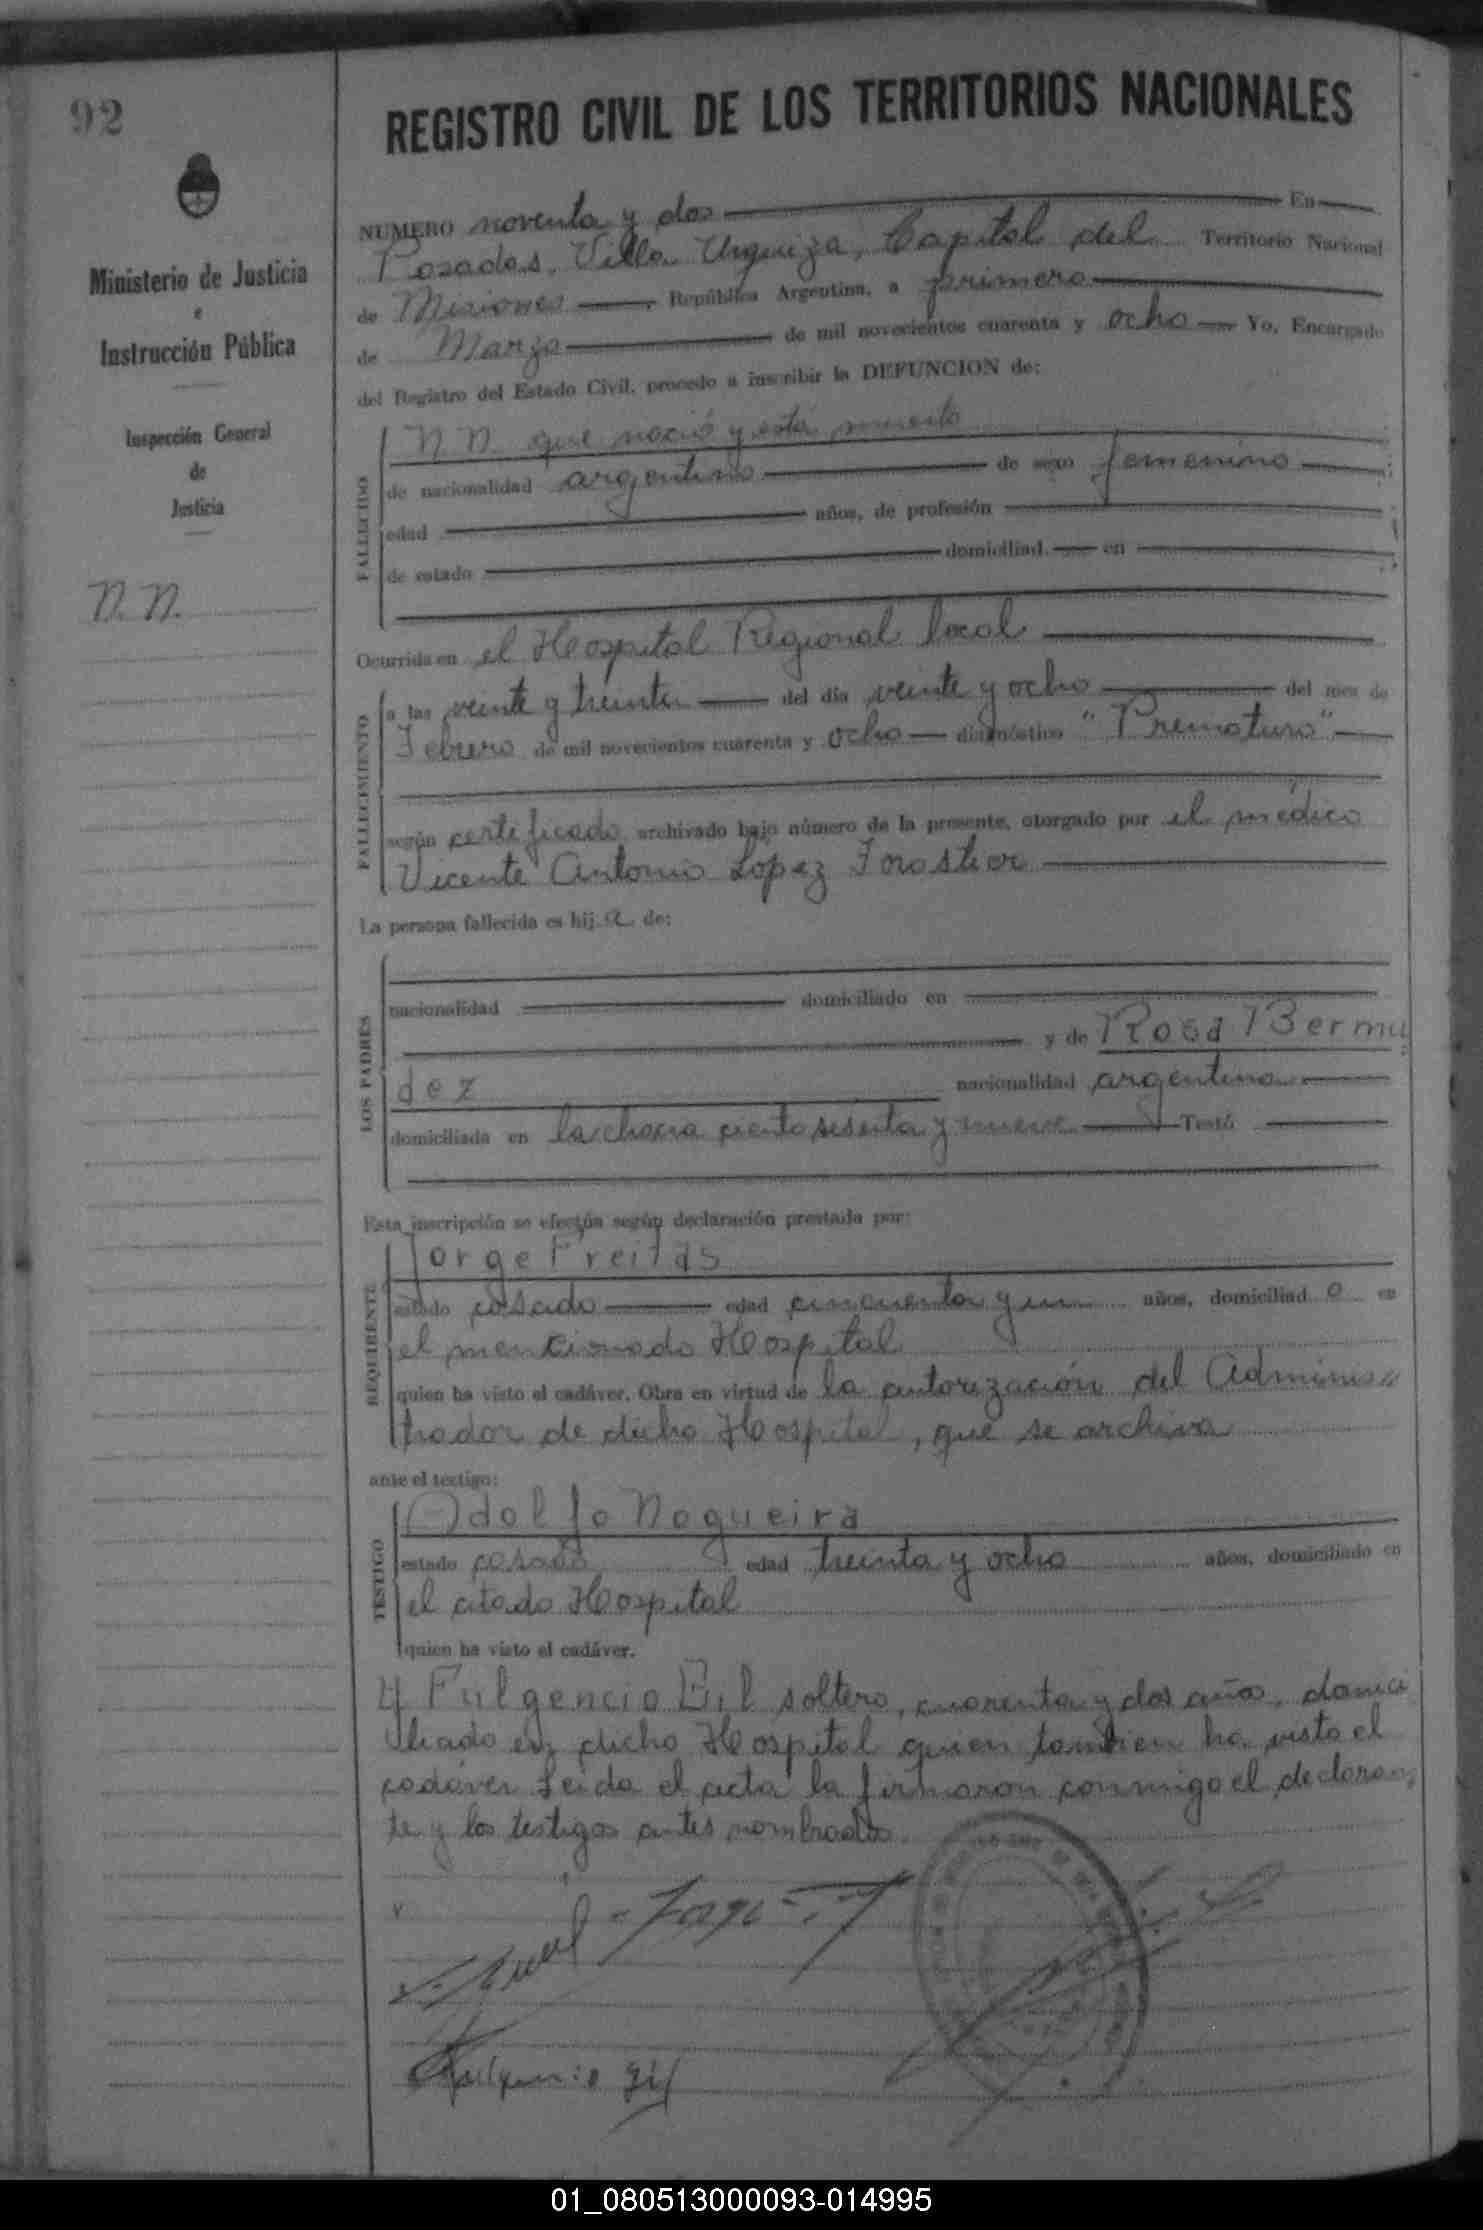 92
REGISTRO CIVIL DE LOS TERRITORIOS NACIONALES
Ministerio de Justicia
e
Instrucción Pública
Inspección General
de
Justicia
N. N.
NUMERO noventa y dos En
Posadas, Villa Urquiza, Capital del Territorio Nacional
de Misiones, República Argentina, a primero
de Marzo de mil novecientos cuarenta y ocho Yo, Encargado
del Registro del Estado Civil, procedo a inscribir la DEFUNCION de:
FALLECIDO
N. N. que nació y está muerto
de nacionalidad argentino de sexo femenino
edad años, de profesión
de estado domiciliad en
Ocurrida en el Hospital Regional local
FALLECIMIENTO
a las veinte y treinta del día veinte y ocho del mes de
Febrero de mil novecientos cuarenta y ocho diagnóstico "Prematuro"
según certificado archivado bajo número de la presente, otorgado por el médico
Vicente Antonio Lopez Forastier
La persona fallecida es hija de:
LOS PADRES
nacionalidad domiciliado en
y de Rosa Bermu
dez nacionalidad argentina
domiciliada en la chacra ciento sesenta y nueve Testó
Esta inscripción se efectúa según declaración prestada por:
REQUIRENTE
Jorge Freitas
estado casado edad cincuenta y un años, domiciliado en
el mencionado Hospital
quien ha visto el cadáver. Obra en virtud de la autorización del Adminis
trador de dicho Hospital, que se archiva
ante el testigo:
TESTIGO
Adolfo Nogueira
estado casado edad treinta y ocho años, domiciliado en
el citado Hospital
quien ha visto el cadáver.
y Fulgencio Gil soltero, cuarenta y dos años, domici
liado en dicho Hospital quien tambien ha visto el
cadáver Leida el acta la firmaron conmigo el declaran
te y los testigos antes nombrados.
Fulgencio Gil
01_080513000093-014995